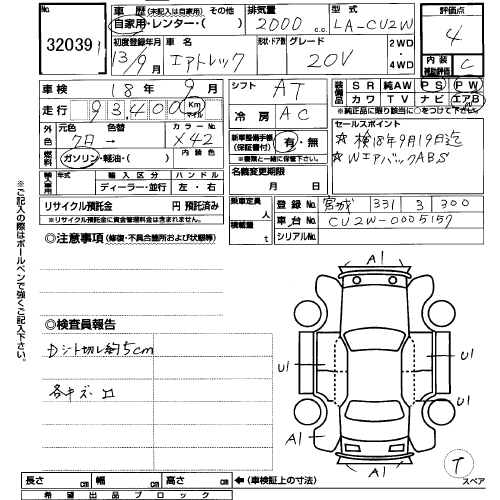 No.
32039
車 歴 (未記入は自家用) その他
自家用・レンター・( )
排気量 2000 c.c.
型式 LA-CU2W
評価点 4
初度登録年月 13/9月
車名 エアトレック
形状・ドア数 グレード 20V
2WD
・
4WD
内装
補助評価 C
車検 18年 9月
シフト AT
装備品 SR 純AW PS PW
カワ TV ナビ エアB
※純正品に限り該当に○を付けて下さい
走行 93,400 Km マイル
冷房 AC
セールスポイント
検18年9月19日迄
WエアバックABS
外色 元色 色替 カラーNo.
→ X42
ガソリン・軽油・( )
内装色
新車整備手帳
(保証書付)
有・無
※書類と一緒に保管下さい。
輸入車用 年式 輸入区分 ハンドル
ディーラー・並行 左・右
名義変更期限
月 日
リサイクル預託金 円 預託済み
※リサイクル預託金に資金管理料金は含まれません。
乗車定員 人
積載量 t
登録No. 宮城 331 3 300
車台No. CU2W-0005157
シリアルNo.
◎注意事項 (修復・不具合箇所および状態等)
◎検査員報告
Dシート切れ約5cm
各キズ
A1
U1
U1
U1
A1
A1
T
スペア
長さ cm 幅 cm 高さ cm ←(車検証上の寸法)
希望出品ブロック
※ご記入の際はボールペンで強くご記入下さい。